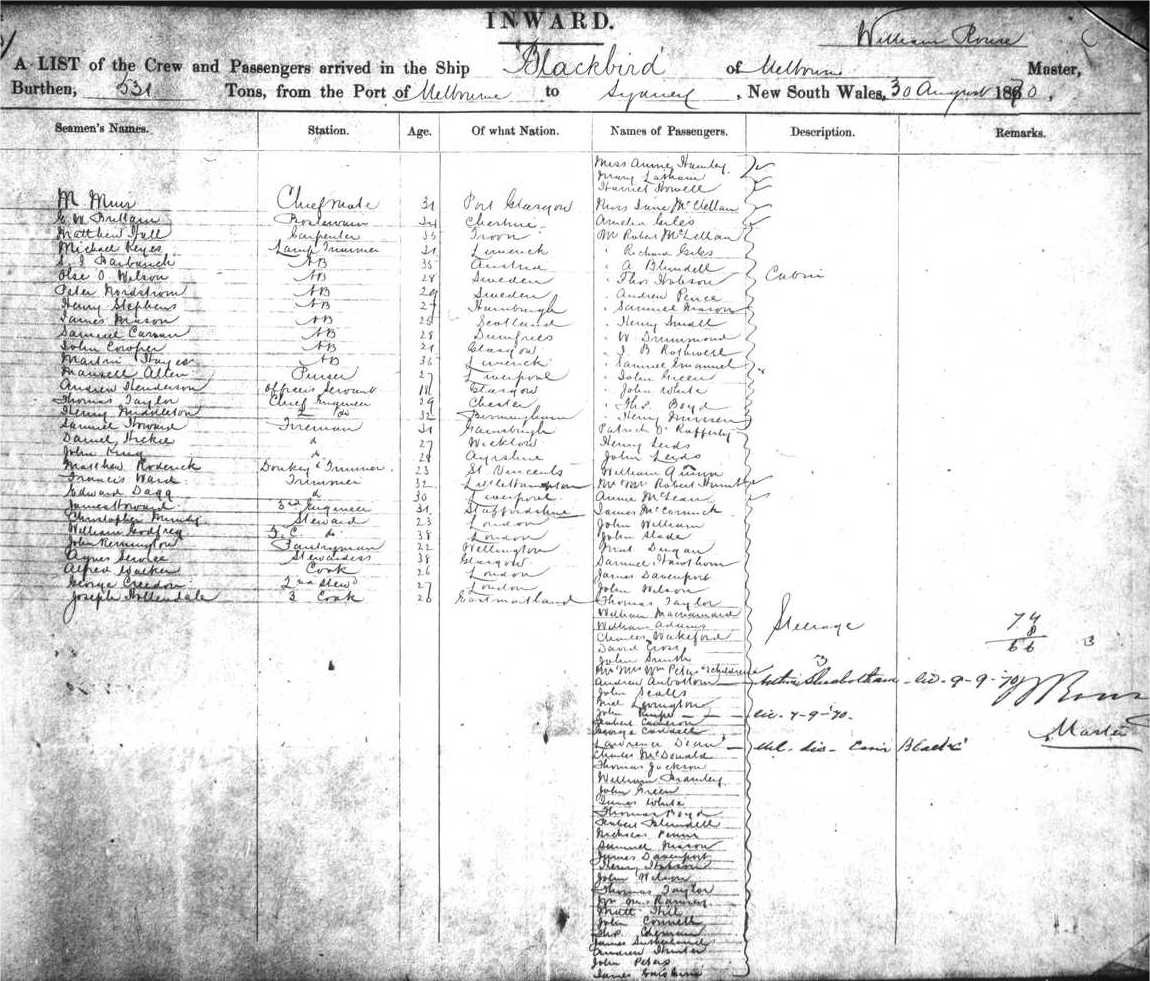 INWARD.
William Rouse
A LIST of the Crew and Passengers arrived in the Ship Blackbird of Melbourne Master,
Burthen, 531 Tons, from the Port of Melbourne to Sydney, New South Wales, 30 August 1870,
Seamen's Names. Station. Age. Of what Nation. Names of Passengers. Description. Remarks.
M Muir Chief Mate 31 Port Glasgow
Cheshire
Matthew Hall Carpenter Troon
Michael Keyes Lamp Trimmer Limerick
AB 35 Austria
Olse O Wilson AB 28 Sweden
Peter Nordstrom AB 29 Sweden
Henry Stephens AB 27 Hambrough
James Mason AB 25 Scotland
Samuel AB 28 Dumfries
John Cowper AB 21 Glasgow
Martin Hayes AB 36 Limerick
Mansell Allen Purser 27 Liverpool
Andrew Henderson Officers Servant 18 Glasgow
Thomas Taylor Chief Engineer 39 Chester
Henry Middleton 2 do 32 Birmingham
Samuel Howard Fireman 31
Daniel Hickie d 27 Wicklow
John King d Ayrshire
Matthew Roderick Donkey & Trimmer 23 St Vincents
Francis Ward Trimmer 32 Littlehampton
Edward Dagg d 30 Liverpool
James Howard 3rd Engineer 31 Staffordshire
Christopher Steward 23 London
William Godfrey F. C. do 38 London
John Pantryman 22 Wellington
Agnes Service Stewardess 38 Glasgow
Alfred Walker Cook 26 London
George Creedon 2nd Stewd 27 London
Joseph Hollendale 3 Cook 26
Miss Annie
Mary Latham
Harriet Howell
Miss Jane McClellan
Amelia Giles
Mr Robert McLellan
" Richard Giles
" A Blundell
" Thos Hobson
" Andrew
" Samuel Mason
" Henry Small
" W Drummond
" J B Rothwell
" Samuel Emanuel
" John Green
" John White
" Thos Boyd
" Henry
Cabin
Patrick O'Rafferty
Henry Leeds
John Leeds
William Quinn
Mr Mrs Robert
Annie McLean
James McCormick
John William
John Slade
Duggan
Samuel Hawthorn
James Davenport
John Wilson
Thomas Taylor
William Macnamara
William Adams
Charles Wakeford
David Cross
John Smith
Steerage
74
8
66
3
Mr Mrs Wm Peters & children 3
Andrew - lic. 9-9-70
John Scales
Levington
John - lic. 7-9-70.
Robert Cameron
George
Lawrence Dean
Charles McDonald
Thomas Jackson
William Bramley
John Green
James White
Thomas Boyd
Robert Blundell
Nicholas
Samuel Mason
James Davenport
Henry Hobson
John Wilson
Thomas Taylor
Wm Ramsey
Matt Hill
John Connell
Thos
James Sutherland
Andrew Hunter
John Peters
James
Rouse
Master